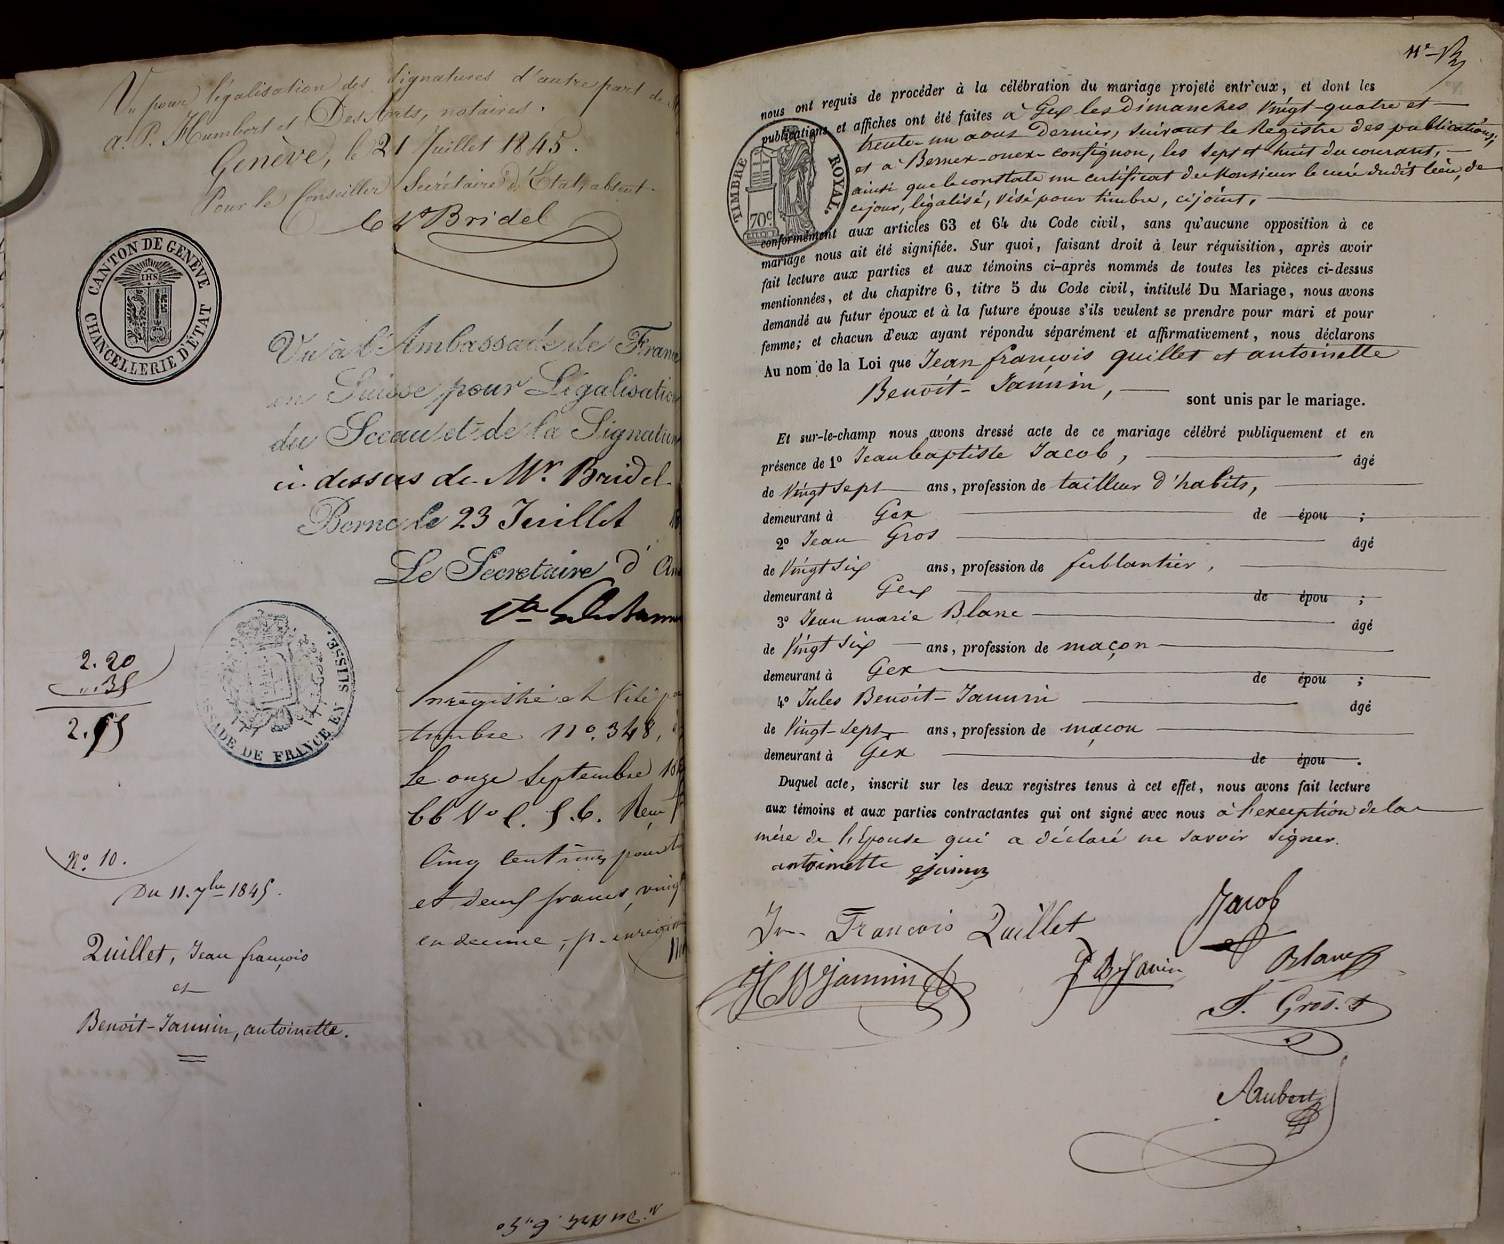 Vu pour légalisation des signatures d'autre part de
a. P. Humbert et DesArts, notaires.
Genève, le 21 Juillet 1845.
Pour le Conseiller Secrétaire d'Etat, absent.
Bridel
CANTON DE GENÈVE
CHANCELLERIE D'ÉTAT
IHS
Vu à l'Ambassade de France
en Suisse pour Légalisation
du Sceau et de la Signature
ci-dessus de Mr. Bridel
Berne le 23 Juillet
Le Secretaire d'
ADE DE FRANCE EN SUISSE.
2.20
35
2.55
Enregistré et Visé p
timbre No. 348,
le onze Septembre 18
66 Vo C. 5.6.
cinq centimes pour
et deux francs vingt
en decime, p. enregis
No. 10.
Du 11. 7bre 1845.
Quillet, Jean françois
et
Benoit-Jannin, antoinette.
nous ont requis de procéder à la célébration du mariage projeté entr'eux, et dont les
publications et affiches ont été faites à Gex les dimanches vingt-quatre et
trente-un aout dernier, suivant le Registre des publications;
et à Bernex-onex-confignon, les sept et huit du courant,
ainsi que le constate un certificat de Monsieur le curé dudit lieu, de
ce jour, légalisé, visé pour timbre, cijoint,
TIMBRE ROYAL.
70c
conformément aux articles 63 et 64 du Code civil, sans qu'aucune opposition à ce
mariage nous ait été signifiée. Sur quoi, faisant droit à leur réquisition, après avoir
fait lecture aux parties et aux témoins ci-après nommés de toutes les pièces ci-dessus
mentionnées, et du chapitre 6, titre 5 du Code civil, intitulé Du Mariage, nous avons
demandé au futur époux et à la future épouse s'ils veulent se prendre pour mari et pour
femme; et chacun d'eux ayant répondu séparément et affirmativement, nous déclarons
Au nom de la Loi que Jean françois quillet et antoinette
Benoit-Jannin,
sont unis par le mariage.
Et sur-le-champ nous avons dressé acte de ce mariage célébré publiquement et en
présence de 1o Jean baptiste Jacob, âgé
de Vingt sept ans, profession de tailleur d'habits,
demeurant à Gex de épou ;
2o Jean Gros âgé
de Vingt six ans, profession de ferblantier,
demeurant à Gex de épou ;
3o Jean marie Blanc âgé
de Vingt six ans, profession de maçon
demeurant à Gex de épou ;
4o Jules Benoit-Jannin âgé
de Vingt-sept ans, profession de maçon
demeurant à Gex de épou .
Duquel acte, inscrit sur les deux registres tenus à cet effet, nous avons fait lecture
aux témoins et aux parties contractantes qui ont signé avec nous à l'exception de la
mère de l'Epouse qui a déclaré ne savoir signer.
antoinette
Jn François Quillet
Jacob
Jannin
Blanc
J. Gros.
Aubert